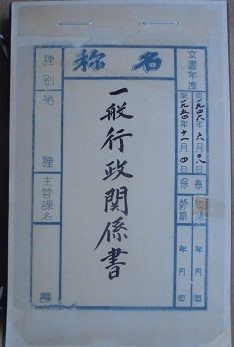 名称
文書年度
自一九四六年六月二八
至一九五四年十一月四日
保
年月日
年月日
一般行政関係書
種別第
種
主管課名